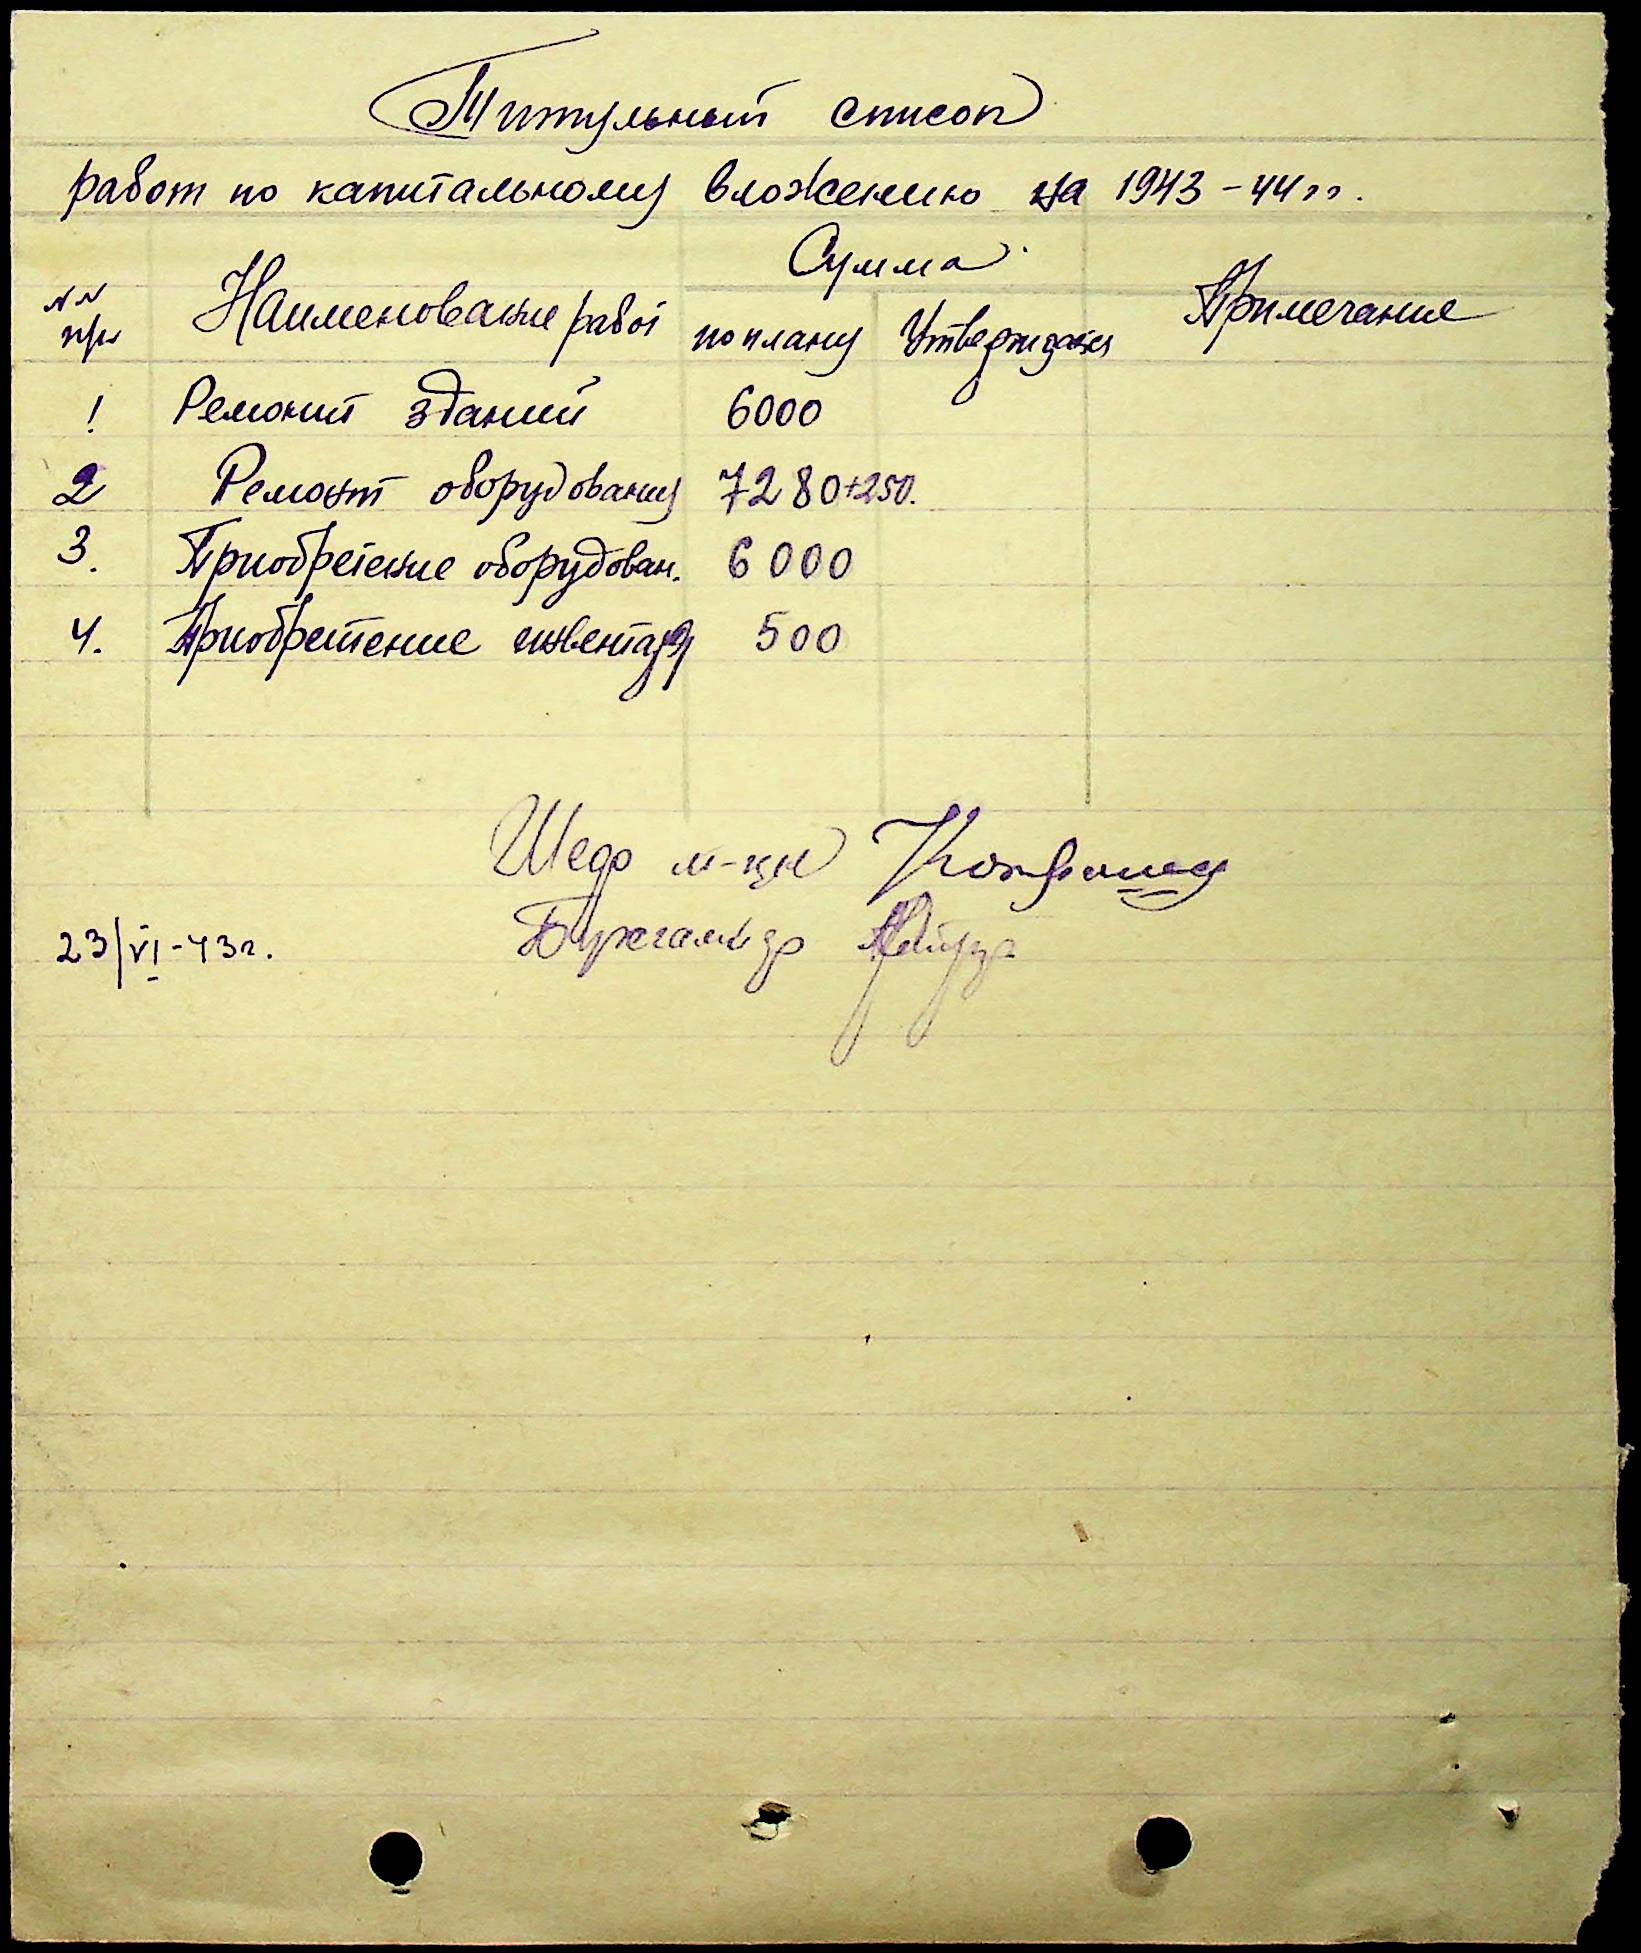 Титульный список
работ по капитальному вложению на 1943-44 гг.
Сумма
NN п/п Наименование работ по плану Утвержден Примечание
1 Ремонт зданий 6000
2 Ремонт оборудования 7280+250.
3. Приобретение оборудован. 6000
4. Приобретение инвентаря 500
м-цы
23/VI-43г. Бухгалтер